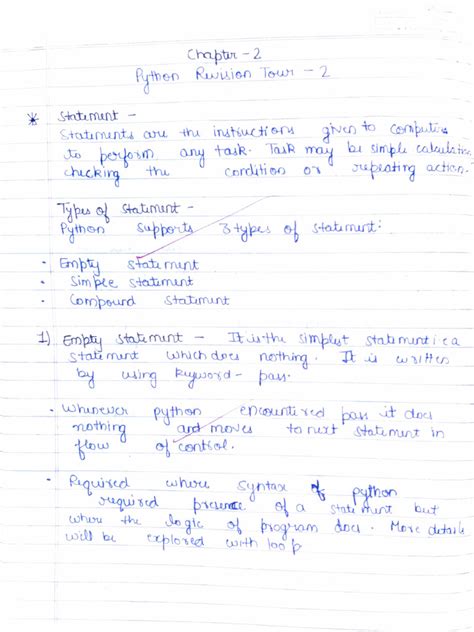 Chapter - 2
Python Revision Tour - 2
* Statement -
Statements are the instructions given to computer
to perform any task. Task may be simple calculation
checking the condition or repeating action.
Types of Statement -
Python supports 3 types of statement:
• Empty statement
• Simple statement
• Compound statement
1) Empty statement - It is the simplest statement i.e a
statement which does nothing. It is written
by using keyword - pass.
• Whenever python encountered pass it does
nothing and moves to next statement in
flow of control.
• Required where syntax of python
required presence of a statement but
where the logic of program does. More details
will be explored with loop